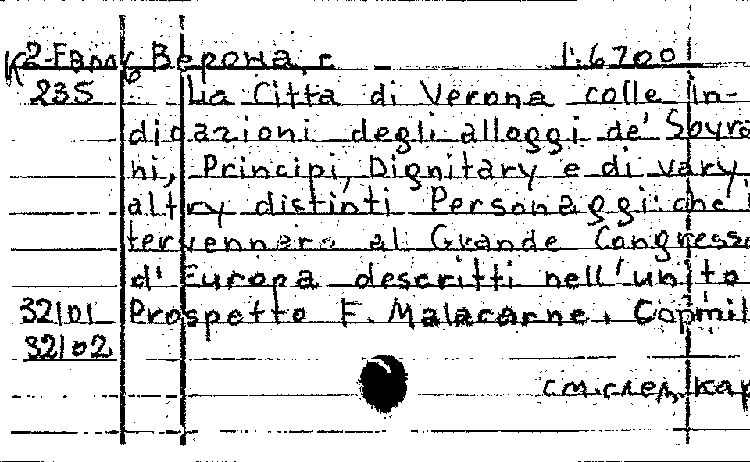 К2-Галл, Верона, г 1:6700
235 La Citta di Verona colle In-
dicazioni degli alloggi de' Sovra
ni, Principi, Dignitary e di vary,
altry distinti Personaggi che i
tervennero al Grande Congresso
d' Europa descritti nell' unito
32101 Prospetto F. Malacarne. Copmil
32102
см. след. кар